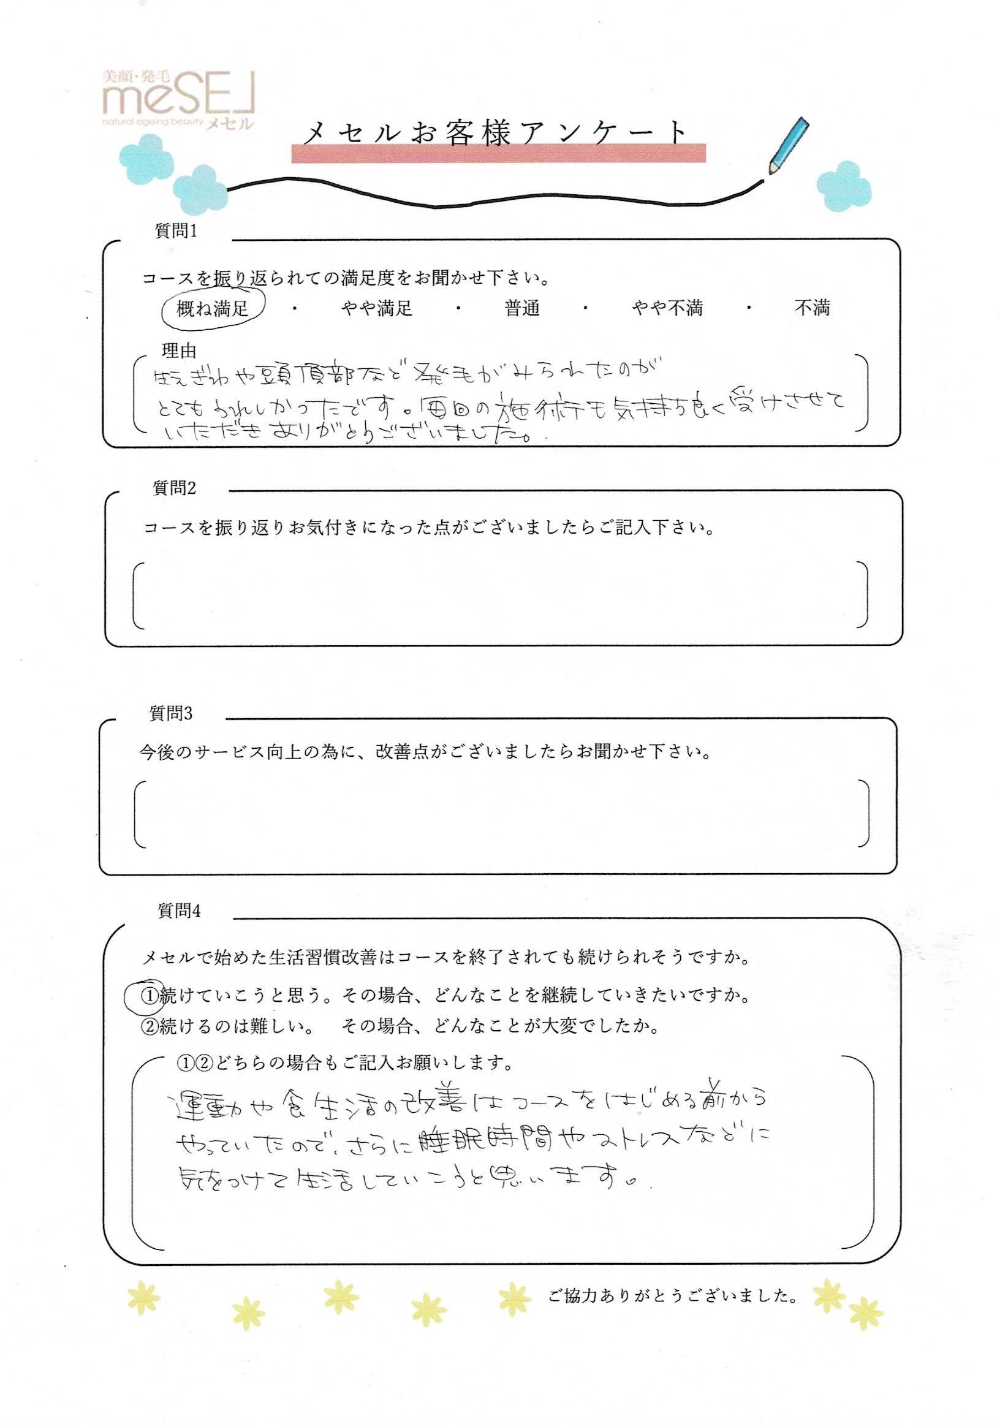 美顔・発毛
meSEL
natural ageing beauty メセル
メセルお客様アンケート
質問1
コースを振り返られての満足度をお聞かせ下さい。
概ね満足 ・ やや満足 ・ 普通 ・ やや不満 ・ 不満
理由
生えぎわや頭頂部など発毛がみられたのが
とてもうれしかったです。毎回の施術も気持ち良く受けさせて
いただきありがとうございました。
質問2
コースを振り返りお気付きになった点がございましたらご記入下さい。
質問3
今後のサービス向上の為に、改善点がございましたらお聞かせ下さい。
質問4
メセルで始めた生活習慣改善はコースを終了されても続けられそうですか。
①続けていこうと思う。その場合、どんなことを継続していきたいですか。
②続けるのは難しい。 その場合、どんなことが大変でしたか。
①②どちらの場合もご記入お願いします。
運動や食生活の改善はコースをはじめる前から
やっていたので、さらに睡眠時間やストレスなどに
気をつけて生活していこうと思います。
ご協力ありがとうございました。